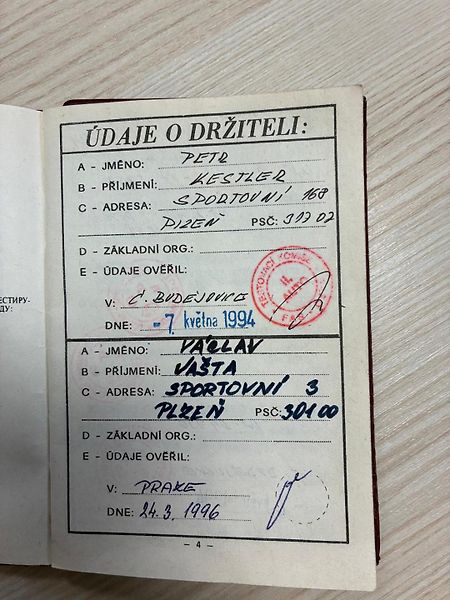 ÚDAJE O DRŽITELI:
A - JMÉNO: PETR
B - PŘÍJMENÍ: KESTLER
C - ADRESA: SPORTOVNÍ 168
PLZEŇ PSČ: 317 02
D - ZÁKLADNÍ ORG.:
E - ÚDAJE OVĚŘIL:
TESTOVACÍ KOMISE
II.
AUTO
FAS
V: Č. BUDEJOVICE
DNE: -7. května 1994
A - JMÉNO: VÁCLAV
B - PŘÍJMENÍ: VAŠTA
C - ADRESA: SPORTOVNÍ 3
PLZEŇ PSČ: 301 00
D - ZÁKLADNÍ ORG.:
E - ÚDAJE OVĚŘIL:
V: PRAZE
DNE: 24.3.1996
- 4 -
ESTIRU-
DU: